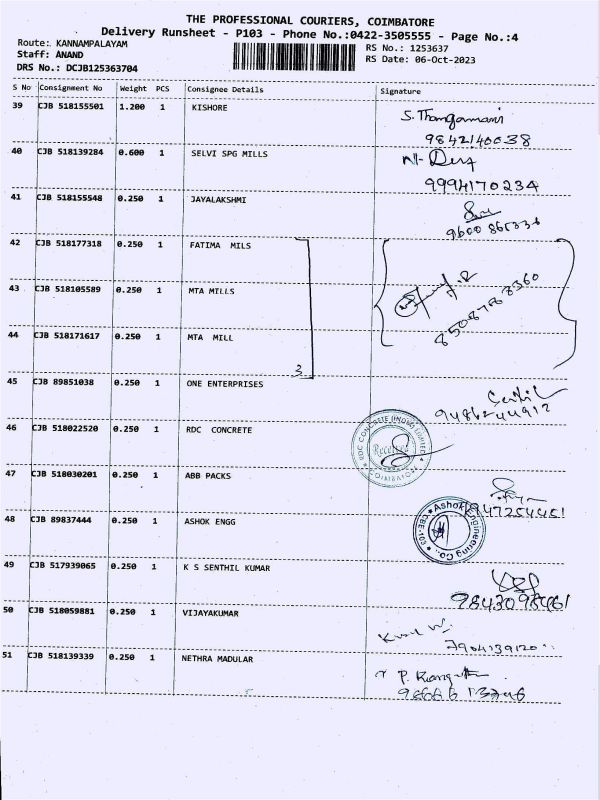 THE PROFESSIONAL COURIERS, COIMBATORE
Delivery Runsheet - P103 - Phone No.:0422-3505555 - Page No.:4
Route: KANNAMPALAYAM
RS No.: 1253637
Staff: ANAND
RS Date: 06-Oct-2023
DRS No.: DCJB125363704
S No Consignment No Weight PCS Consignee Details Signature
39 CJB 518155501 1.200 1 KISHORE
S. Thangamani
9842140038
40 CJB 518139284 0.600 1 SELVI SPG MILLS
9994170234
41 CJB 518155548 0.250 1 JAYALAKSHMI
42 CJB 518177318 0.250 1 FATIMA MILS
43 CJB 518105589 0.250 1 MTA MILLS
44 CJB 518171617 0.250 1 MTA MILL
3
45 CJB 89851038 0.250 1 ONE ENTERPRISES
9486244912
46 CJB 518022520 0.250 1 RDC CONCRETE
RDC CONCRETE (INDIA) LIMITED
Received
COIMBATORE
47 CJB 518030201 0.250 1 ABB PACKS
947254451
48 CJB 89837444 0.250 1 ASHOK ENGG
Ashok Engineering Co.
49 CJB 517939065 0.250 1 K S SENTHIL KUMAR
9843098461
50 CJB 518059881 0.250 1 VIJAYAKUMAR
51 CJB 518139339 0.250 1 NETHRA MADULAR